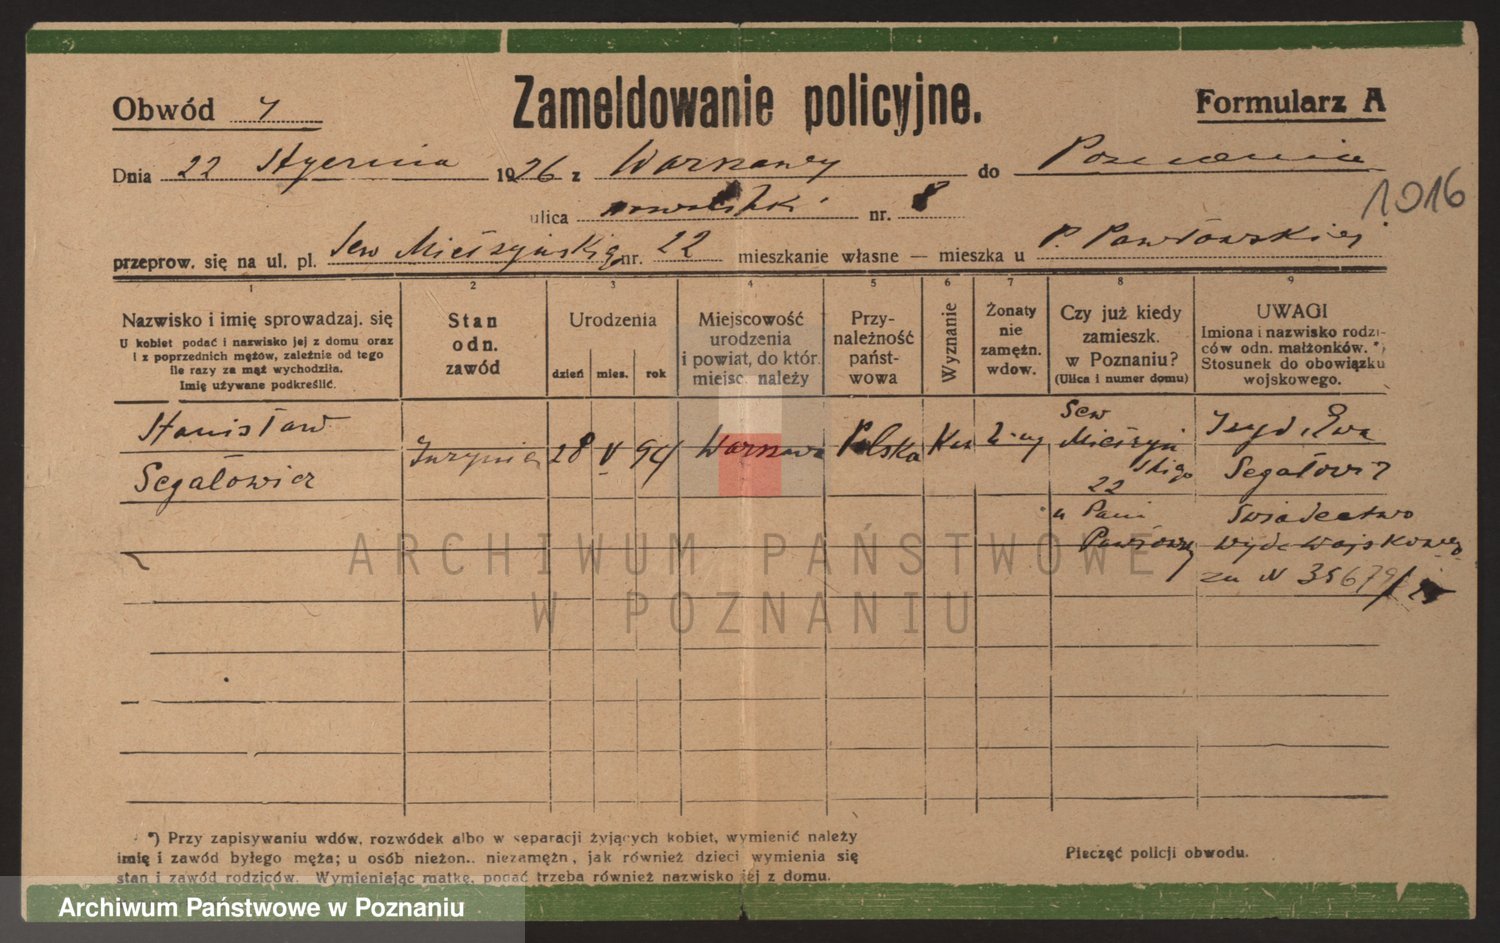 Zameldowanie policyjne.
Obwód 7
Formularz A
Dnia 22 Stycznia 1926 z Warszawy do Poznania
1016
ulica nr. 8
przeprow. się na ul. pl. Sew Mielżyńskiego nr. 22 mieszkanie własne — mieszka u P. Pawłowskiej
1 2 3 4 5 6 7 8 9
Nazwisko i imię sprowadzaj. się
U kobiet podać i nazwisko jej z domu oraz
i z poprzednich mężów, zależnie od tego
ile razy za mąż wychodziła.
Imię używane podkreślić.
Stan
odn.
zawód
Urodzenia
dzień mies. rok
Miejscowość
urodzenia
i powiat, do któr.
miejsc. należy
Przy-
należność
państ-
wowa
Wyznanie
Żonaty
nie
zamężn.
wdow.
Czy już kiedy
zamieszk.
w Poznaniu?
(Ulica i numer domu)
UWAGI
Imiona i nazwisko rodzi-
ców odn. małżonków. *)
Stosunek do obowiązku
wojskowego.
Stanisław
Segałowicz
28 V 94
Warszawa
Polska
Sew
Mielżyń
skiego
22
u Pani
Ewa
Świadectwo
za N 35679/
*) Przy zapisywaniu wdów, rozwódek albo w separacji żyjących kobiet, wymienić należy
imię i zawód byłego męża; u osób nieżon.. niezamężn, jak również dzieci wymienia się
stan i zawód rodziców. Wymieniając matkę, podać trzeba również nazwisko jej z domu.
Pieczęć policji obwodu.
ARCHIWUM PAŃSTWOWE
W POZNANIU
Archiwum Państwowe w Poznaniu